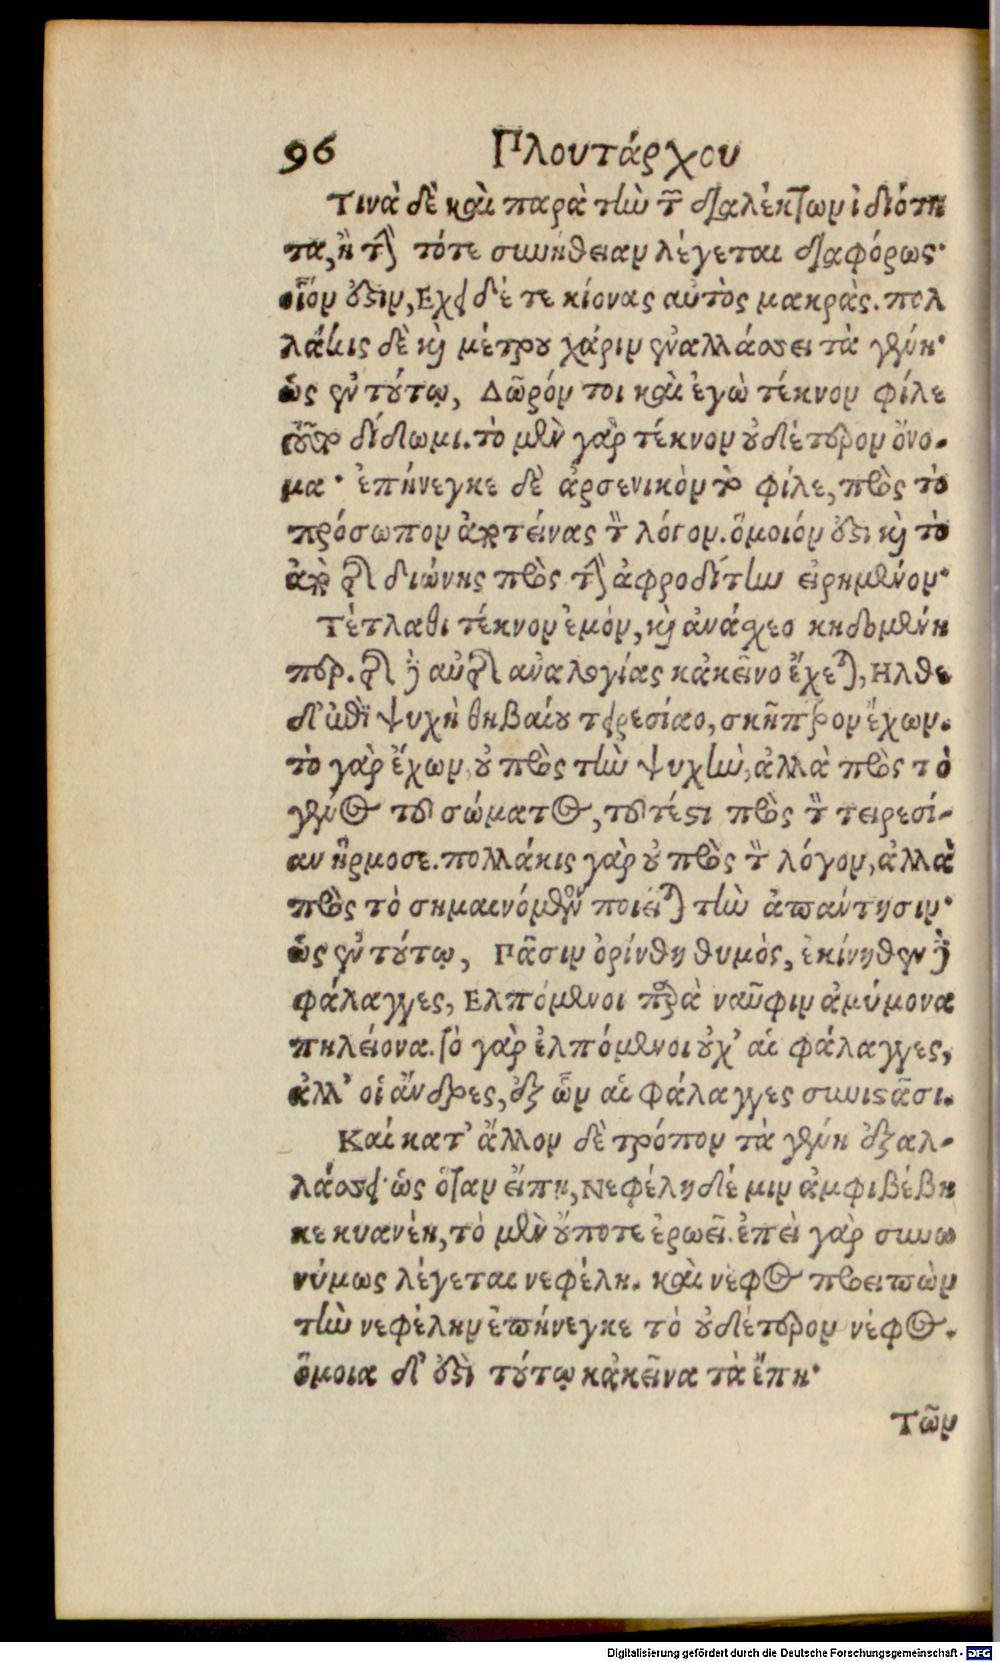 96 Πλουτάρχου
Τινὰ δὲ καὶ παρὰ τὴν τῶν διαλέκτων ἰδιότη
τα, ἢ τὴν τότε συνήθειαν λέγεται διαφόρως·
οἷον ἐστιν, Εχει δέ τε κίονας αὐτὸς μακρὰς. πολ
λάκις δὲ καὶ μέτρου χάριν ἐναλλάσσει τὰ γένη·
ὡς ἐν τούτῳ, Δῶρόν τοι καὶ ἐγὼ τέκνον φίλε
τοῦτο δίδωμι. τὸ μὲν γὰρ τέκνον οὐδέτερον ὄνο-
μα· ἐπήνεγκε δὲ ἀρσενικὸν τὸ φίλε, πρὸς τὸ
πρόσωπον ἀποτείνας τὸν λόγον. ὅμοιόν ἐστι καὶ τὸ
ἀπὸ τῆς διώνης πρὸς τὴν ἀφροδίτην εἰρημένον·
Τέτλαθι τέκνον ἐμόν, καὶ ἀνάσχεο κηδομένη
περ. τῆς δὲ αὐτῆς ἀναλογίας κἀκεῖνο ἔχεται, Ηλθε
δ' ἐπὶ ψυχὴ θηβαίου τειρεσίαο, σκῆπτρον ἔχων.
τὸ γὰρ ἔχων, οὐ πρὸς τὴν ψυχὴν, ἀλλὰ πρὸς τὸ
γένος τοῦ σώματος, τουτέστι πρὸς τὸν τειρεσί-
αν ἥρμοσε. πολλάκις γὰρ οὐ πρὸς τὸν λόγον, ἀλλὰ
πρὸς τὸ σημαινόμενον ποιεῖται τὴν ἀπάντησιν·
ὡς ἐν τούτῳ, Πᾶσιν ὀρίνθη θυμὸς, ἐκίνηθεν δὲ
φάλαγγες, Ελπόμενοι παρὰ ναῦφιν ἀμύμονα
πηλείονα. τὸ γὰρ ἐλπόμενοι οὐχ' αἱ φάλαγγες,
ἀλλ' οἱ ἄνδρες, ἐξ ὧν αἱ φάλαγγες συνιστᾶσι.
Καὶ κατ' ἄλλον δὲ τρόπον τὰ γένη ἐξαλ-
λάσσει· ὡς ὅταν εἴπῃ, Νεφέλη δέ μιν ἀμφιβέβη
κε κυανέη, τὸ μὲν οὔποτε ἐρωεῖ. ἐπεὶ γὰρ συνω
νύμως λέγεται νεφέλη. καὶ νέφος προειπὼν
τὴν νεφέλην ἐπήνεγκε τὸ οὐδέτερον νέφος.
ὅμοια δ' ἐστὶ τούτῳ κἀκεῖνα τὰ ἔπη·
τῶν
Digitalisierung gefördert durch die Deutsche Forschungsgemeinschaft - DFG